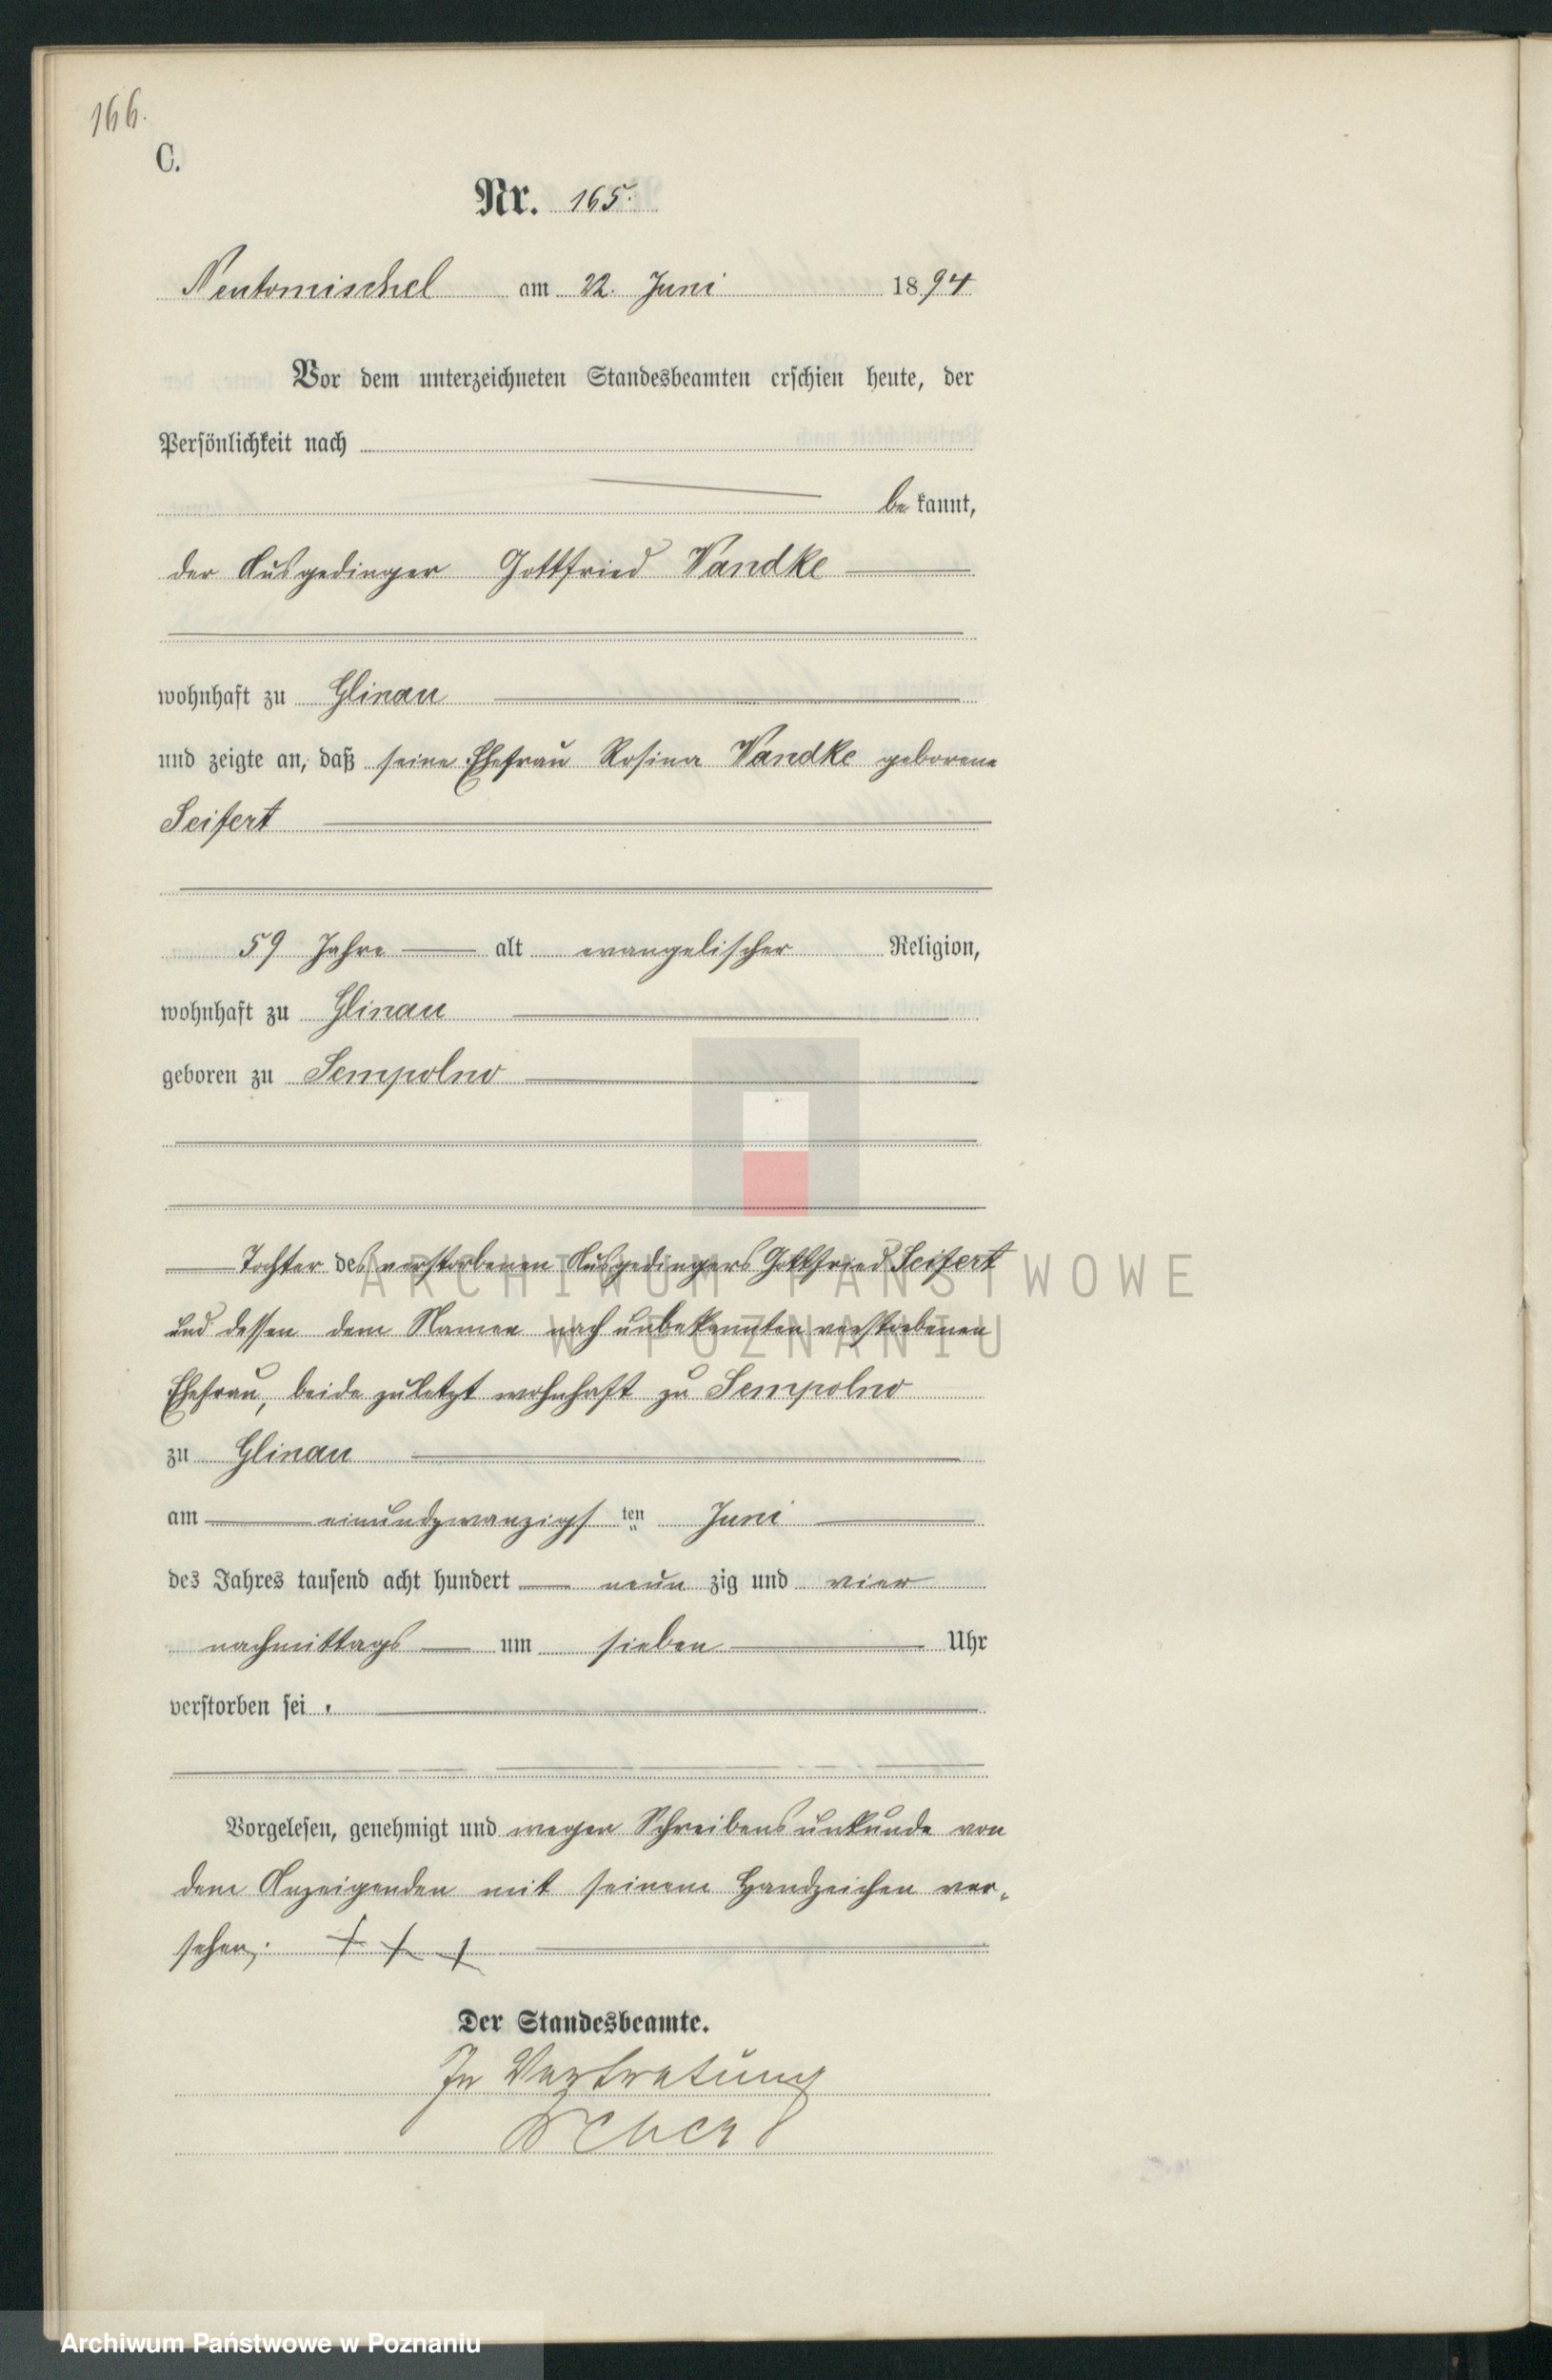 166.
C.
Nr. 165.
Neutomischel am 22. Juni 1894
Vor dem unterzeichneten Standesbeamten erschien heute, der
Persönlichkeit nach
be kannt,
der Ausgedinger Gottfried Wandke
wohnhaft zu Glinau
und zeigte an, daß seine Ehefrau Rosina Wandke geborene
Seifert
59 Jahre alt evangelischer Religion,
wohnhaft zu Glinau
geboren zu Sempolno
Tochter des verstorbenen Ausgedingers Gottfried Seifert
und dessen dem Namen nach unbekannten verstorbenen
Ehefrau, beide zuletzt wohnhaft zu Sempolno
zu Glinau
am einundzwanzigs ten Juni
des Jahres tausend acht hundert neun zig und vier
nachmittags um sieben Uhr
verstorben sei.
Vorgelesen, genehmigt und wegen Schreibensunkunde von
dem Anzeigenden mit seinem Handzeichen ver-
sehen; + + +
Der Standesbeamte.
In Vertretung
ARCHIWUM PAŃSTWOWE
W POZNANIU
Archiwum Państwowe w Poznaniu